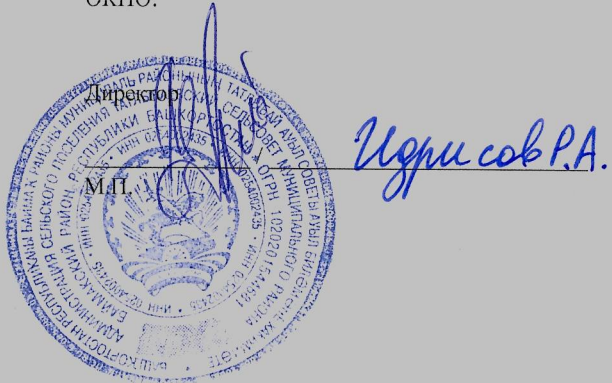 ОКПО:
Директор
Идрисов Р.А.
М.П.
БАШҠОРТОСТАН РЕСПУБЛИКАҺЫ БАЙМАҠ РАЙОНЫ МУНИЦИПАЛЬ РАЙОНЫНЫҢ
АУЫЛ СОВЕТЫ АУЫЛ БИЛӘМӘҺЕ ХАКИМИӘТЕ
АДМИНИСТРАЦИЯ СЕЛЬСКОГО ПОСЕЛЕНИЯ
СЕЛЬСОВЕТ МУНИЦИПАЛЬНОГО РАЙОНА
БАЙМАКСКИЙ РАЙОН РЕСПУБЛИКИ БАШКОРТОСТАН
ОГРН
ИНН 0254002435